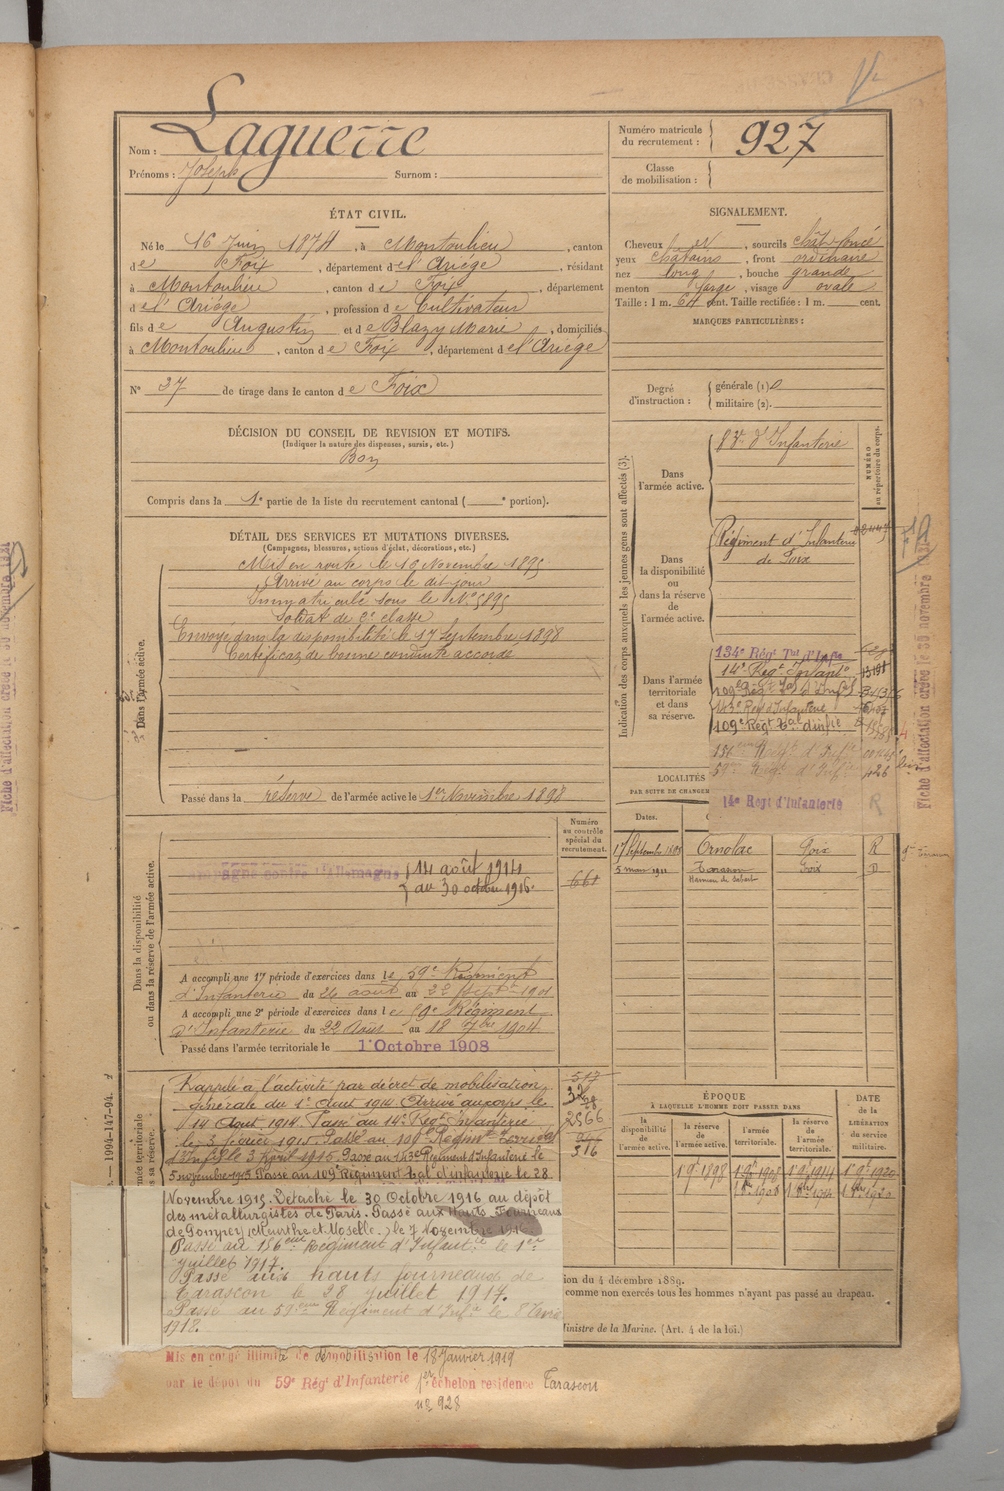 Nom : Laguerre
Prénoms : Joseph Surnom :
Numéro matricule du recrutement : 927
Classe de mobilisation :
ÉTAT CIVIL.
Né le 16 Juin 1874, à Montoulieu, canton
de Foix, département de l'Ariége, résidant
à Montoulieu, canton de Foix, département
de l'Ariége, profession de Cultivateur
fils de Augustin et de Blazy Marie, domiciliés
à Montoulieu, canton de Foix, département de l'Ariége
N° 37 de tirage dans le canton de Foix
SIGNALEMENT.
Cheveux , sourcils chât. foncé
yeux châtains, front ordinaire
nez long, bouche grande
menton large, visage ovale
Taille : 1 m. 64 cent. Taille rectifiée : 1 m. cent.
MARQUES PARTICULIÈRES :
Degré d'instruction : générale (1)
militaire (2).
DÉCISION DU CONSEIL DE REVISION ET MOTIFS.
(Indiquer la nature des dispenses, sursis, etc.)
Bon
Compris dans la 1e partie de la liste du recrutement cantonal ( e portion).
DÉTAIL DES SERVICES ET MUTATIONS DIVERSES.
(Campagnes, blessures, actions d'éclat, décorations, etc.)
Dans l'armée active.
Mis en route le 16 Novembre 1895
Arrivé au corps le dit jour
Immatriculé sous le N° 5895
Soldat de 2e classe
Envoyé dans la disponibilité le 17 Septembre 1898
Certificat de bonne conduite accordé
Passé dans la réserve de l'armée active le 1er Novembre 1898
Indication des corps auxquels les jeunes gens sont affectés (3).
NUMÉRO au répertoire du corps.
Dans l'armée active.
83e d'Infanterie
Dans la disponibilité ou dans la réserve de l'armée active.
Régiment d'Infanterie
de Foix
Dans l'armée territoriale et dans sa réserve.
134e Régt Tal d'Infie
14e Régt Infant
109e Régt Tal d'Inf
143e Régt d'Infanterie
109e Régt Tal d'Infie
156eme Régt d'Infie
59eme Régt d'Infie
14e Regt d'Infanterie R
Fiche d'affectation créée le 30 novembre 1921
LOCALITÉS
PAR SUITE DE CHANGEM
Dates.
17 Septembre 1898 Ornolac Foix R
5 mars 1911 Tarascon Foix D
Hameau de Sabart
Numéro au contrôle spécial du recrutement.
661
Dans la disponibilité ou dans la réserve de l'armée active.
Campagne contre l'Allemagne 14 août 1914
au 30 octobre 1916.
A accompli une 1re période d'exercices dans le 59e Régiment
d'Infanterie du 26 août au 22 Septe 1901
A accompli une 2e période d'exercices dans le 59e Régiment
d'Infanterie du 22 Août au 18 7bre 1904
Passé dans l'armée territoriale le 1er Octobre 1908
Rappelé à l'activité par décret de mobilisation
générale du 1er Août 1914. Arrivé au corps le
14 Août 1914. Passé au 14e Régt Infanterie
le 3 février 1915. Passé au 109e Régimt Territal
d'Infie le 3 Avril 1915. Passé au 143e Régiment d'Infanterie le
5 novembre 1915 Passé au 109e Régiment Tal d'infanterie le 28
Novembre 1915. Détaché le 30 Octobre 1916 au dépôt
des métallurgistes de Paris. Passé aux Hauts Fourneaux
de Pompey (Meurthe et Moselle) le 7 Novembre 1916
Passé au 156eme Régiment d'Infantie le 1er
juillet 1917.
Passé aux hauts fourneaux de
Tarascon le 28 juillet 1917.
Passé au 59eme Régiment d'Infie le 8
1918.
517
2566
516
ÉPOQUE
À LAQUELLE L'HOMME DOIT PASSER DANS
la disponibilité de l'armée active.
la réserve de l'armée active.
l'armée territoriale.
la réserve de l'armée territoriale.
DATE de la LIBÉRATION du service militaire.
1 9bre 1898 1 9bre 1908 1 9bre 1914 1 9bre 1920
ion du 4 décembre 1889.
comme non exercés tous les hommes n'ayant pas passé au drapeau.
Ministre de la Marine. (Art. 4 de la loi.)
— 1994-147-94.
Mis en congé illimité de démobilisation le 18 Janvier 1919
par le dépôt du 59e Régt d'Infanterie 1er échelon résidence Tarascon
n° 928